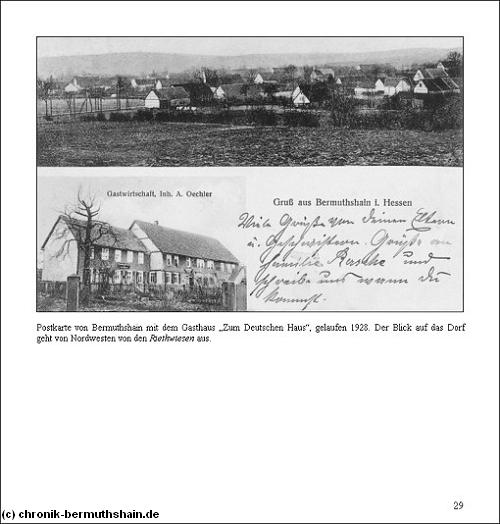 Gastwirtschaft, Inh. A. Oechler
Gruß aus Bermuthshain i. Hessen
Viele Grüße von deinen Eltern
u. Geschwistern. Grüße an
Familie Rasche und
schreibe uns wann du
kommst.
Postkarte von Bermuthshain mit dem Gasthaus „Zum Deutschen Haus“, gelaufen 1928. Der Blick auf das Dorf
geht von Nordwesten von den Riethwiesen aus.
29
(c) chronik-bermuthshain.de